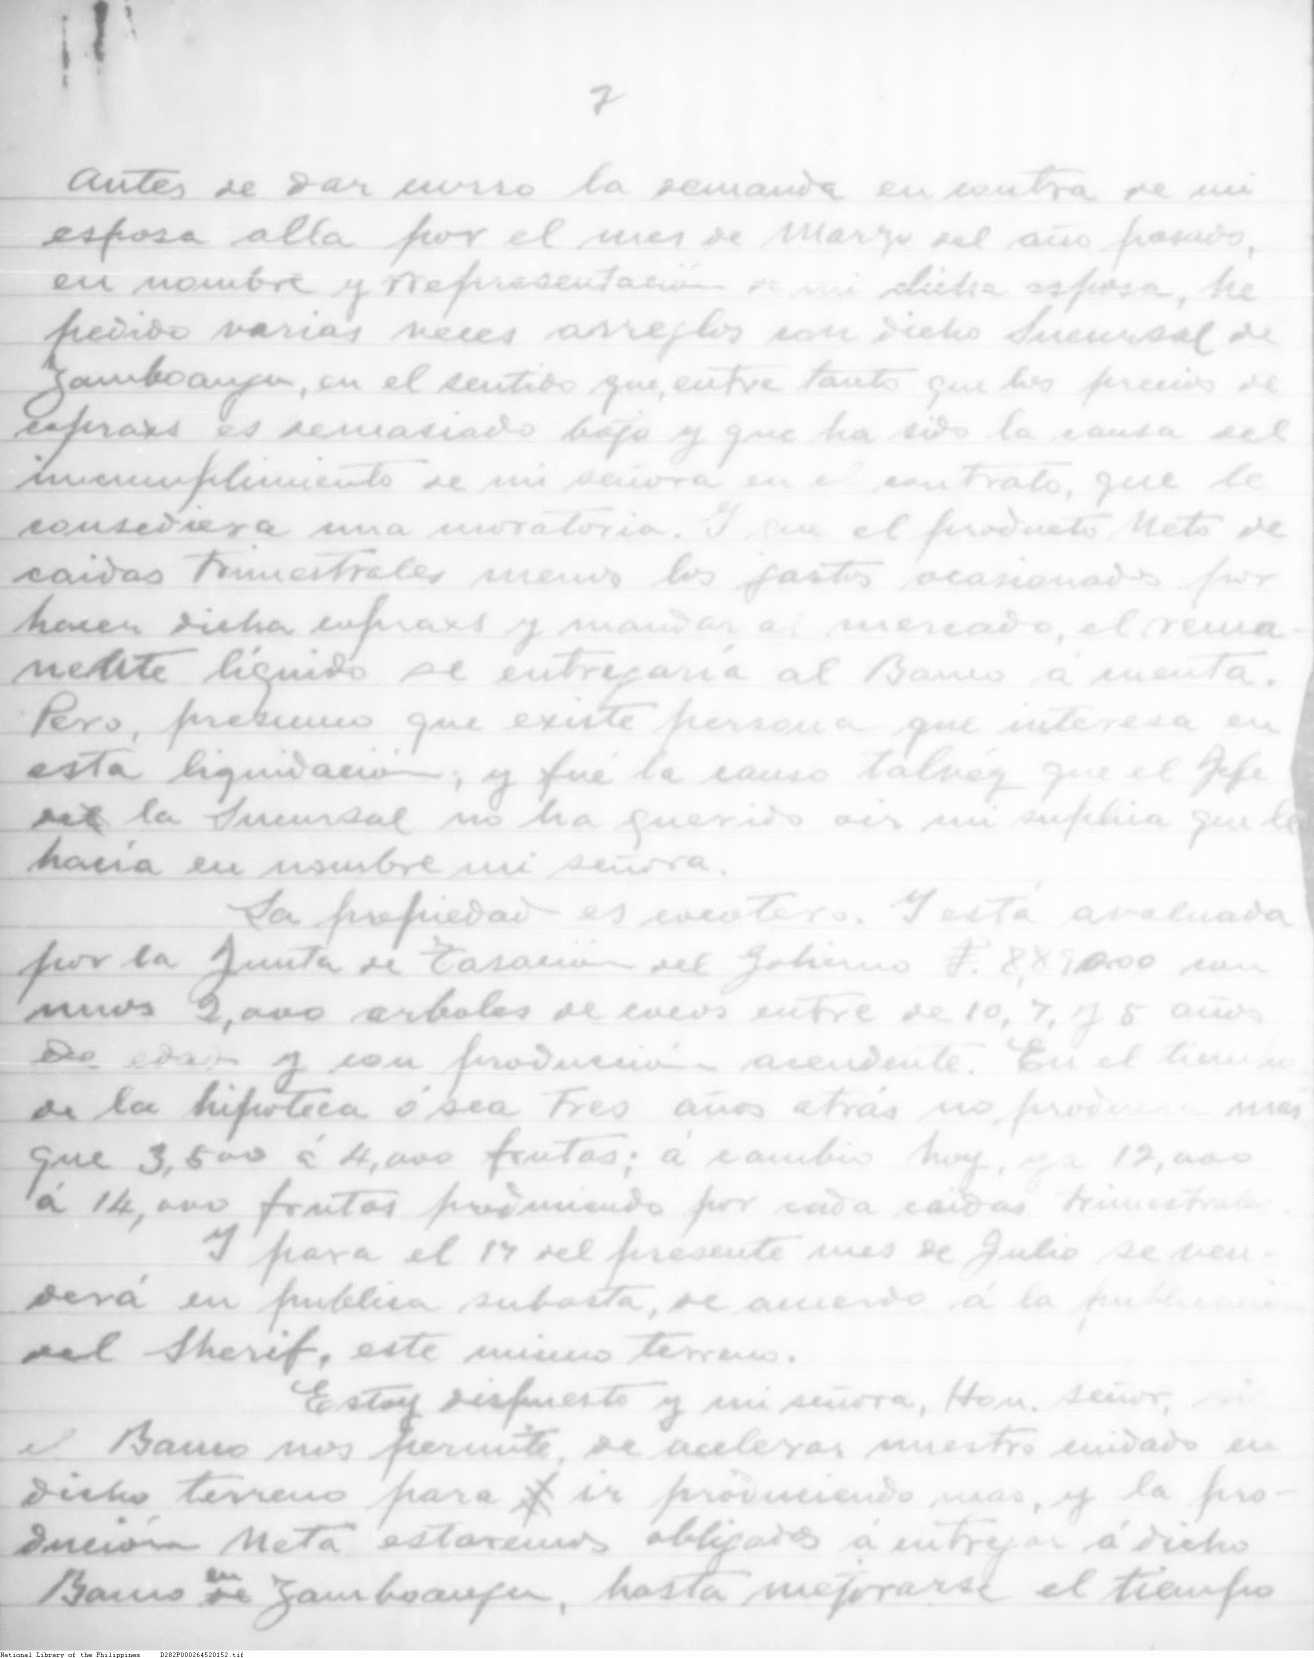 2
Antes de dar curso la demanda en contra de mi
esposa allá por el mes de Marzo del año pasado,
en nombre y representación de mi dicha esposa, he
pedido varias veces arreglos con dicho Sucursal de
Zamboanga, en el sentido que, entre tanto que los precios de
copraxs es demasiado bajo y que ha sido la causa del
incumplimiento de mi señora en el contrato, que le
consediera una moratoria. Y que el producto Neto de
caidas trimestrales menos los gastos ocasionados por
hacer dicha copraxs y mandar al mercado, el rema-
nente líquido se entregaría al Banco á cuenta.
Pero, presumo que existe persona que interesa en
esta liquidación, y fué la causa talvéz que el Jefe
de la Sucursal no ha querido oir mi suplica que le
hacía en nombre mi señora.
La propiedad es cocotero. Y está avaluada
por la Junta de Tasación del Gobierno ₱. con
unos 2,000 arboles de cocos entre de 10, 7, y 5 años
de edad y con producción acendente. En el tiempo
de la hipoteca ó sea Tres años atrás no producia mas
que 3,500 á 4,000 frutas; á cambio hoy, ya 12,000
á 14,000 frutas produciendo por cada caidas trimestrales.
Y para el 17 del presente mes de Julio se ven-
derá en publica subasta, de acuerdo á la publicación
del Sherif, este mismo terreno.
Estoy dispuesto y mi señora, Hon. señor, si
el Banco nos permite, de acelerar nuestro cuidado en
dicho terreno para ir produciendo mas, y la pro-
ducción Neta estaremos obligados á entregar á dicho
Banco en Zamboanga, hasta mejorarse el tiempo
National Library of the Philippines D282P000264520152.tif